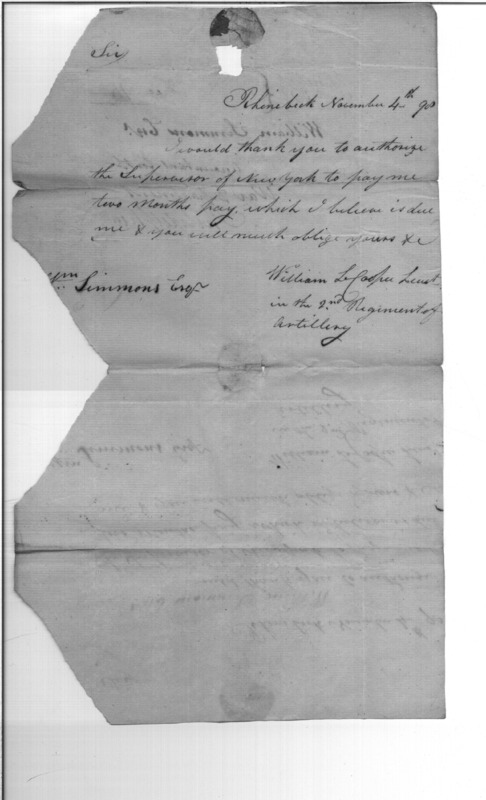 Sir
Rhinebeck November 4th 98
I would thank you to authorize
the Supervisor of New York to pay me
two months pay, which I believe is due
me & you will much oblige yours &c
Wm Simmons Esqr
William L Cooper Lieut
in the 2nd Regiment of
Artillery
William Simmons Esqr